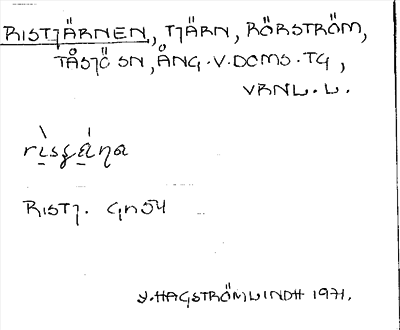 RISTJÄRNEN, TJÄRN, RÖRSTRÖM,
TÅSJÖ SN, ÅNG. V. DOMS. TG,
VRNL. L.
RISTJ. GN54
Y. HAGSTRÖM LINDH 1971.